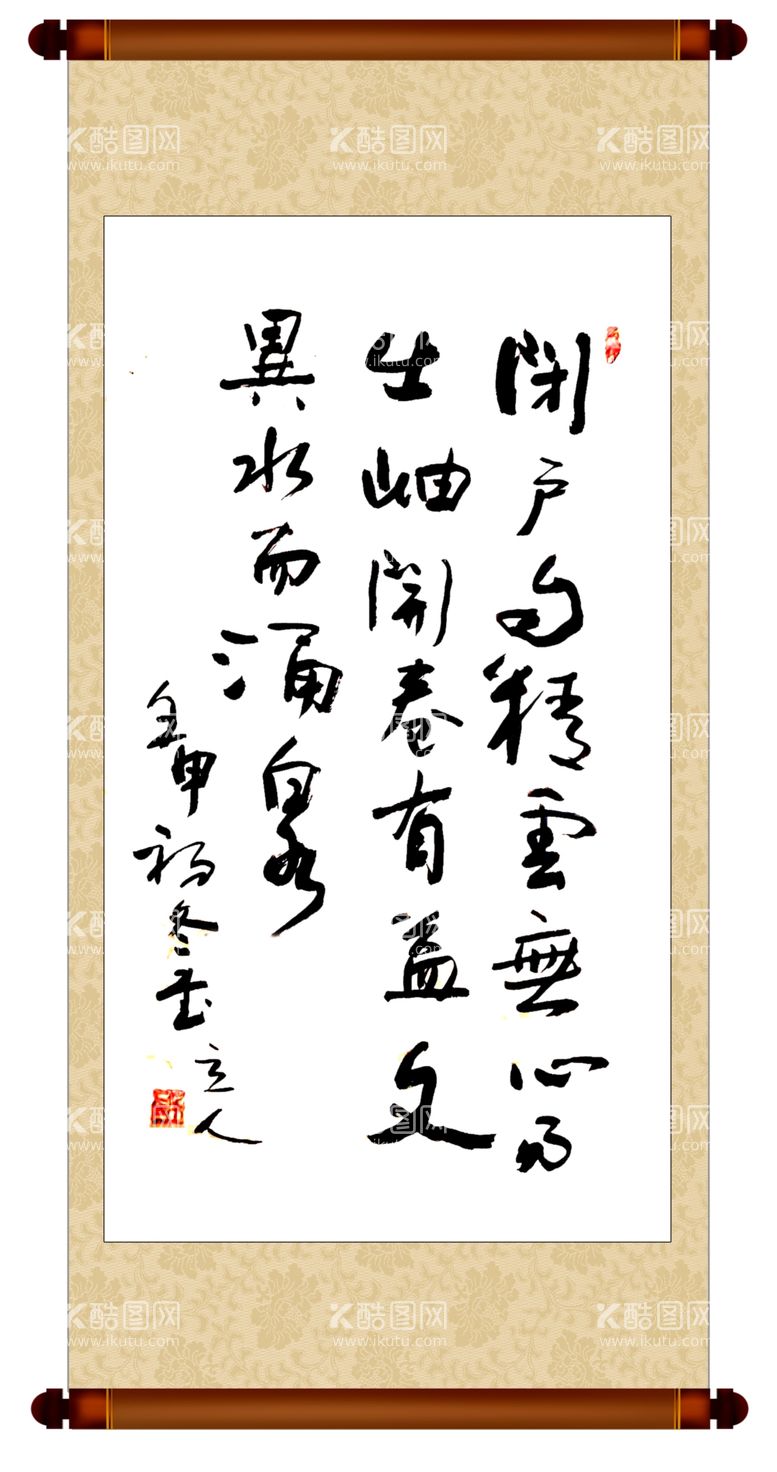 閉户自精雲無心
出岫開卷有益文
異水而涌泉
壬申初冬書立人
K酷图网
www.ikutu.com